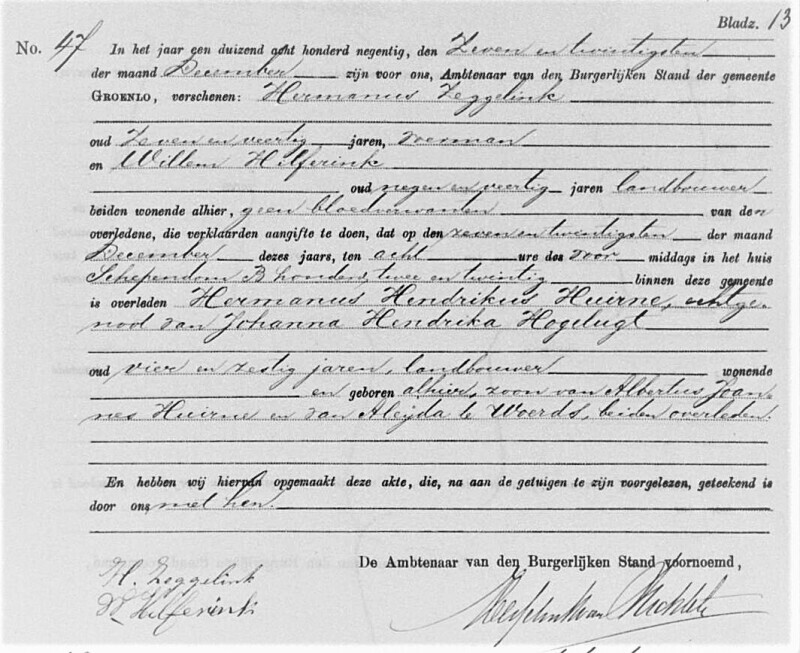 Bladz. 13
No. 47 In het jaar een duizend acht honderd negentig, den Zeven en twintigsten
der maand December zijn voor ons, Ambtenaar van den Burgerlijken Stand der gemeente
GROENLO, verschenen: Hermanus Zeggelink
oud Zeven en veertig jaren, voerman
en Willem Hilferink
oud negen en veertig jaren landbouwer
beiden wonende alhier, geen bloedverwanten van den
overledene, die verklaarden aangifte te doen, dat op den zeven en twintigsten der maand
December dezes jaars, ten acht ure des voor middags in het huis
Schependom B honderd twee en twintig binnen deze gemeente
is overleden Hermanus Hendrikus Huirne, echtge-
noot van Johanna Hendrika Hogelugt
oud vier en zestig jaren, landbouwer wonende
en geboren alhier, zoon van Albertus Joan-
nes Huirne en van Aleijda te Woerds, beiden overleden.
En hebben wij hiervan opgemaakt deze akte, die, na aan de getuigen te zijn voorgelezen, geteekend is
door ons met hen.
De Ambtenaar van den Burgerlijken Stand voornoemd,
H. Zeggelink
W Hilferink